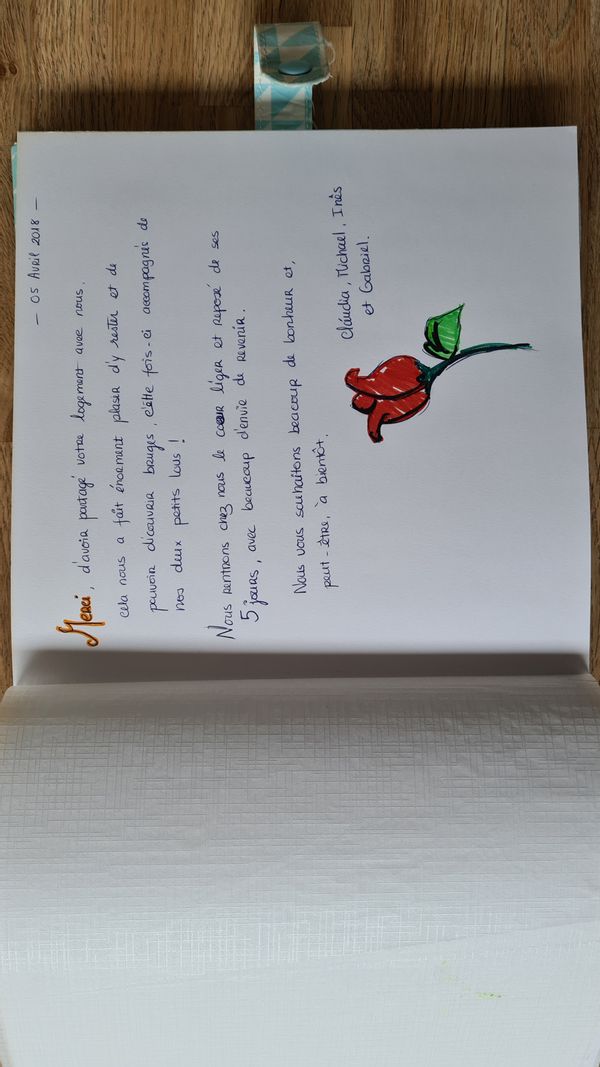 — 05 Avril 2018 —
Merci, d'avoir partagé votre logement avec nous.
cela nous a fait énormement plaisir d'y rester et de
pouvoir découvrir bruges, cette fois-ci accompagnés de
nos deux petits lous !
Nous rentrons chez nous le cœur léger et reposé de ses
5 jours, avec beaucoup d'envie de revenir.
Nous vous souhaitons beaucoup de bonheur et,
peut-être, à bientôt.
Cláudia, Michael, Inês
et Gabriel.